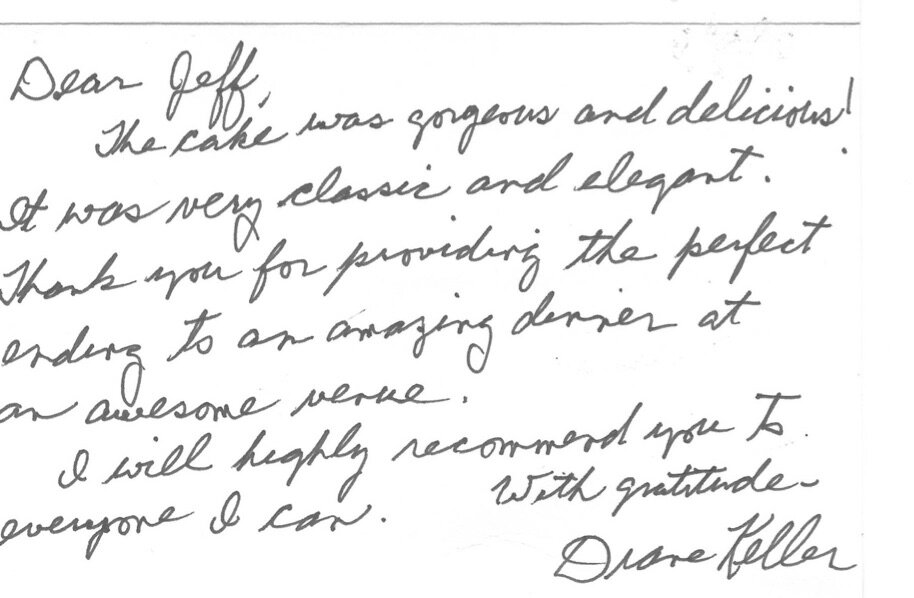 Dear Jeff,
The cake was gorgeous and delicious!
It was very classic and elegant.
Thank you for providing the perfect
ending to an amazing dinner at
an awesome venue.
I will highly recommend you to
everyone I can. With gratitude-
Diane Keller